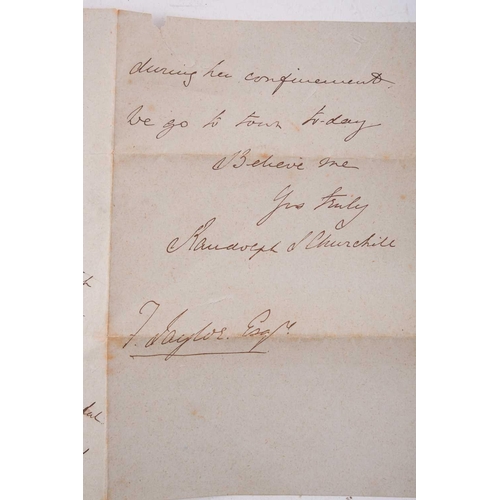 during her confinement.
We go to town to-day
Believe me
Yrs truly
Randolph S Churchill
T. Taylor. Esqr.